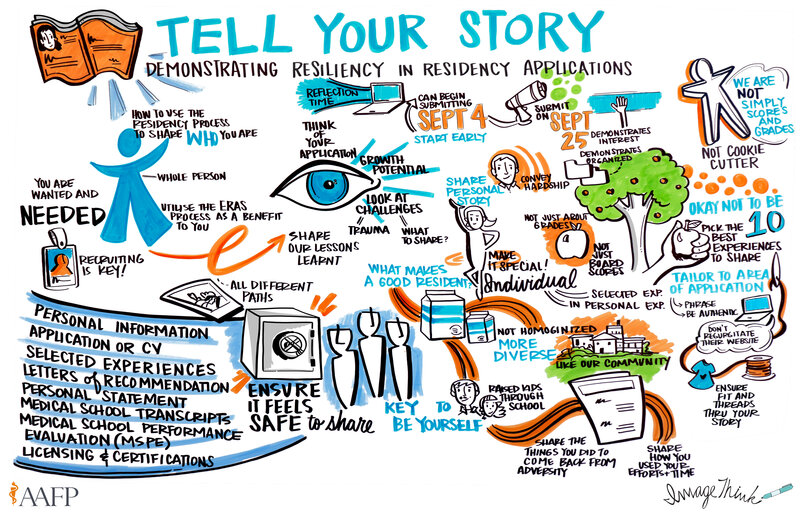 TELL YOUR STORY
DEMONSTRATING RESILIENCY IN RESIDENCY APPLICATIONS
HOW TO USE THE
RESIDENCY PROCESS
TO SHARE WHO YOU ARE
WHOLE PERSON
YOU ARE
WANTED AND
NEEDED
UTILISE THE ERAS
PROCESS AS A BENEFIT
TO YOU
RECRUITING
IS KEY!
REFLECTION
TIME
CAN BEGIN
SUBMITTING
SEPT 4
START EARLY
SUBMIT
ON SEPT
25
DEMONSTRATES
INTEREST
DEMONSTRATES
ORGANIZED
THINK
OF
YOUR
APPLICATION
GROWTH
POTENTIAL
LOOK AT
CHALLENGES
TRAUMA
WHAT
TO SHARE?
SHARE
OUR LESSONS
LEARNT
SHARE
PERSONAL
STORY
CONVEY
HARDSHIP
NOT JUST ABOUT
GRADES?
NOT
JUST
BOARD
SCORES
MAKE
IT SPECIAL!
Individual
SELECTED EXP.
IN PERSONAL EXP.
WE ARE
NOT
SIMPLY
SCORES
AND
GRADES
NOT COOKIE
CUTTER
OKAY NOT TO BE
10
PICK THE
BEST
EXPERIENCES
TO SHARE
TAILOR TO AREA
OF APPLICATION
PHRASE
BE AUTHENTIC
DON'T
REGURGITATE
THEIR WEBSITE
ENSURE
FIT AND
THREADS
THRU YOUR
STORY
ALL DIFFERENT
PATHS
PERSONAL INFORMATION
APPLICATION OR CV
SELECTED EXPERIENCES
LETTERS of RECOMMENDATION
PERSONAL STATEMENT
MEDICAL SCHOOL TRANSCRIPTS
MEDICAL SCHOOL PERFORMANCE
EVALUATION (MSPE)
LICENSING & CERTIFICATIONS
ENSURE
IT FEELS
SAFE to share
KEY TO
BE YOURSELF
WHAT MAKES
A GOOD RESIDENT?
NOT HOMOGINIZED
MORE
DIVERSE
LIKE OUR COMMUNITY
RAISED KIDS
THROUGH
SCHOOL
SHARE THE
THINGS YOU DID TO
COME BACK FROM
ADVERSITY
SHARE
HOW YOU
USED YOUR
EFFORTS + TIME
AAFP
ImageThink